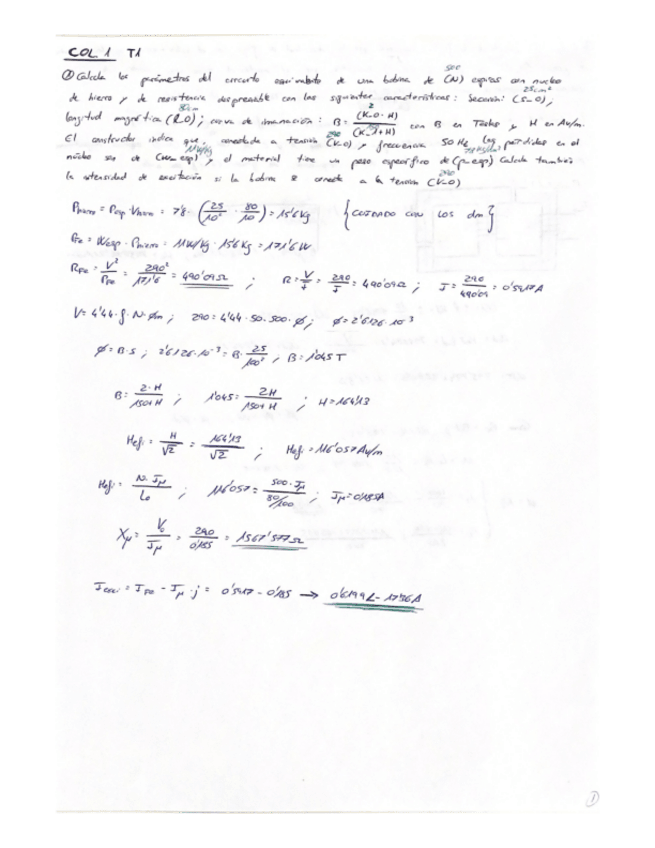 COL. 1 T1
① Calcula los parámetros del circuito equivalente de una bobina de (N) espiras con nucleo
500
de hierro y de resistencia despreciable con las siguientes características: Sección: (S_0);
25cm²
longitud magnética (l_0); curva de imanación: B = (K_0 · H) / (K_1 + H) con B en Teslas y H en Av/m.
80cm 2
El constructor indica que, conectada a tensión (V_0), frecuencia 50 Hz, las pérdidas en el
290
núcleo son de (W_esp), el material tiene un peso específico de (p_esp) Calcula también
11W/kg
la intensidad de excitación si la bobina se conecta a la tensión (V_0)
290
Phierro = Pesp · Vhierro = 7'8 · (25/10² · 80/10) = 15'6 Kg {CUIDADO CON LOS dm}
PFe = Wesp · Phierro = 11W/Kg · 15'6 Kg = 171'6 W
RFe = V²/PFe = 290²/171'6 = 490'09Ω ; R = V/I = 290/I = 490'09Ω ; I = 290/490'09 = 0'5917A
V = 4'44 · f · N · Φm ; 290 = 4'44 · 50 · 500 · Φ ; Φ = 2'6126 · 10⁻³
Φ = B · S ; 2'6126 · 10⁻³ = B · 25/100² ; B = 1'045 T
B = 2·H/150+H ; 1'045 = 2H/150+H ; H = 164'13
Hef = H/√2 = 164'13/√2 ; Hef = 116'057 Av/m
Hef = N·Iμ/L₀ ; 116'057 = 500·Iμ/80/100 ; Iμ = 0'185A
Xμ = V₀/Iμ = 290/0'185 = 1567'577Ω
Iexc = IFe - Iμ·j = 0'5917 - 0'185 → 0'6199∠-17'36A
1